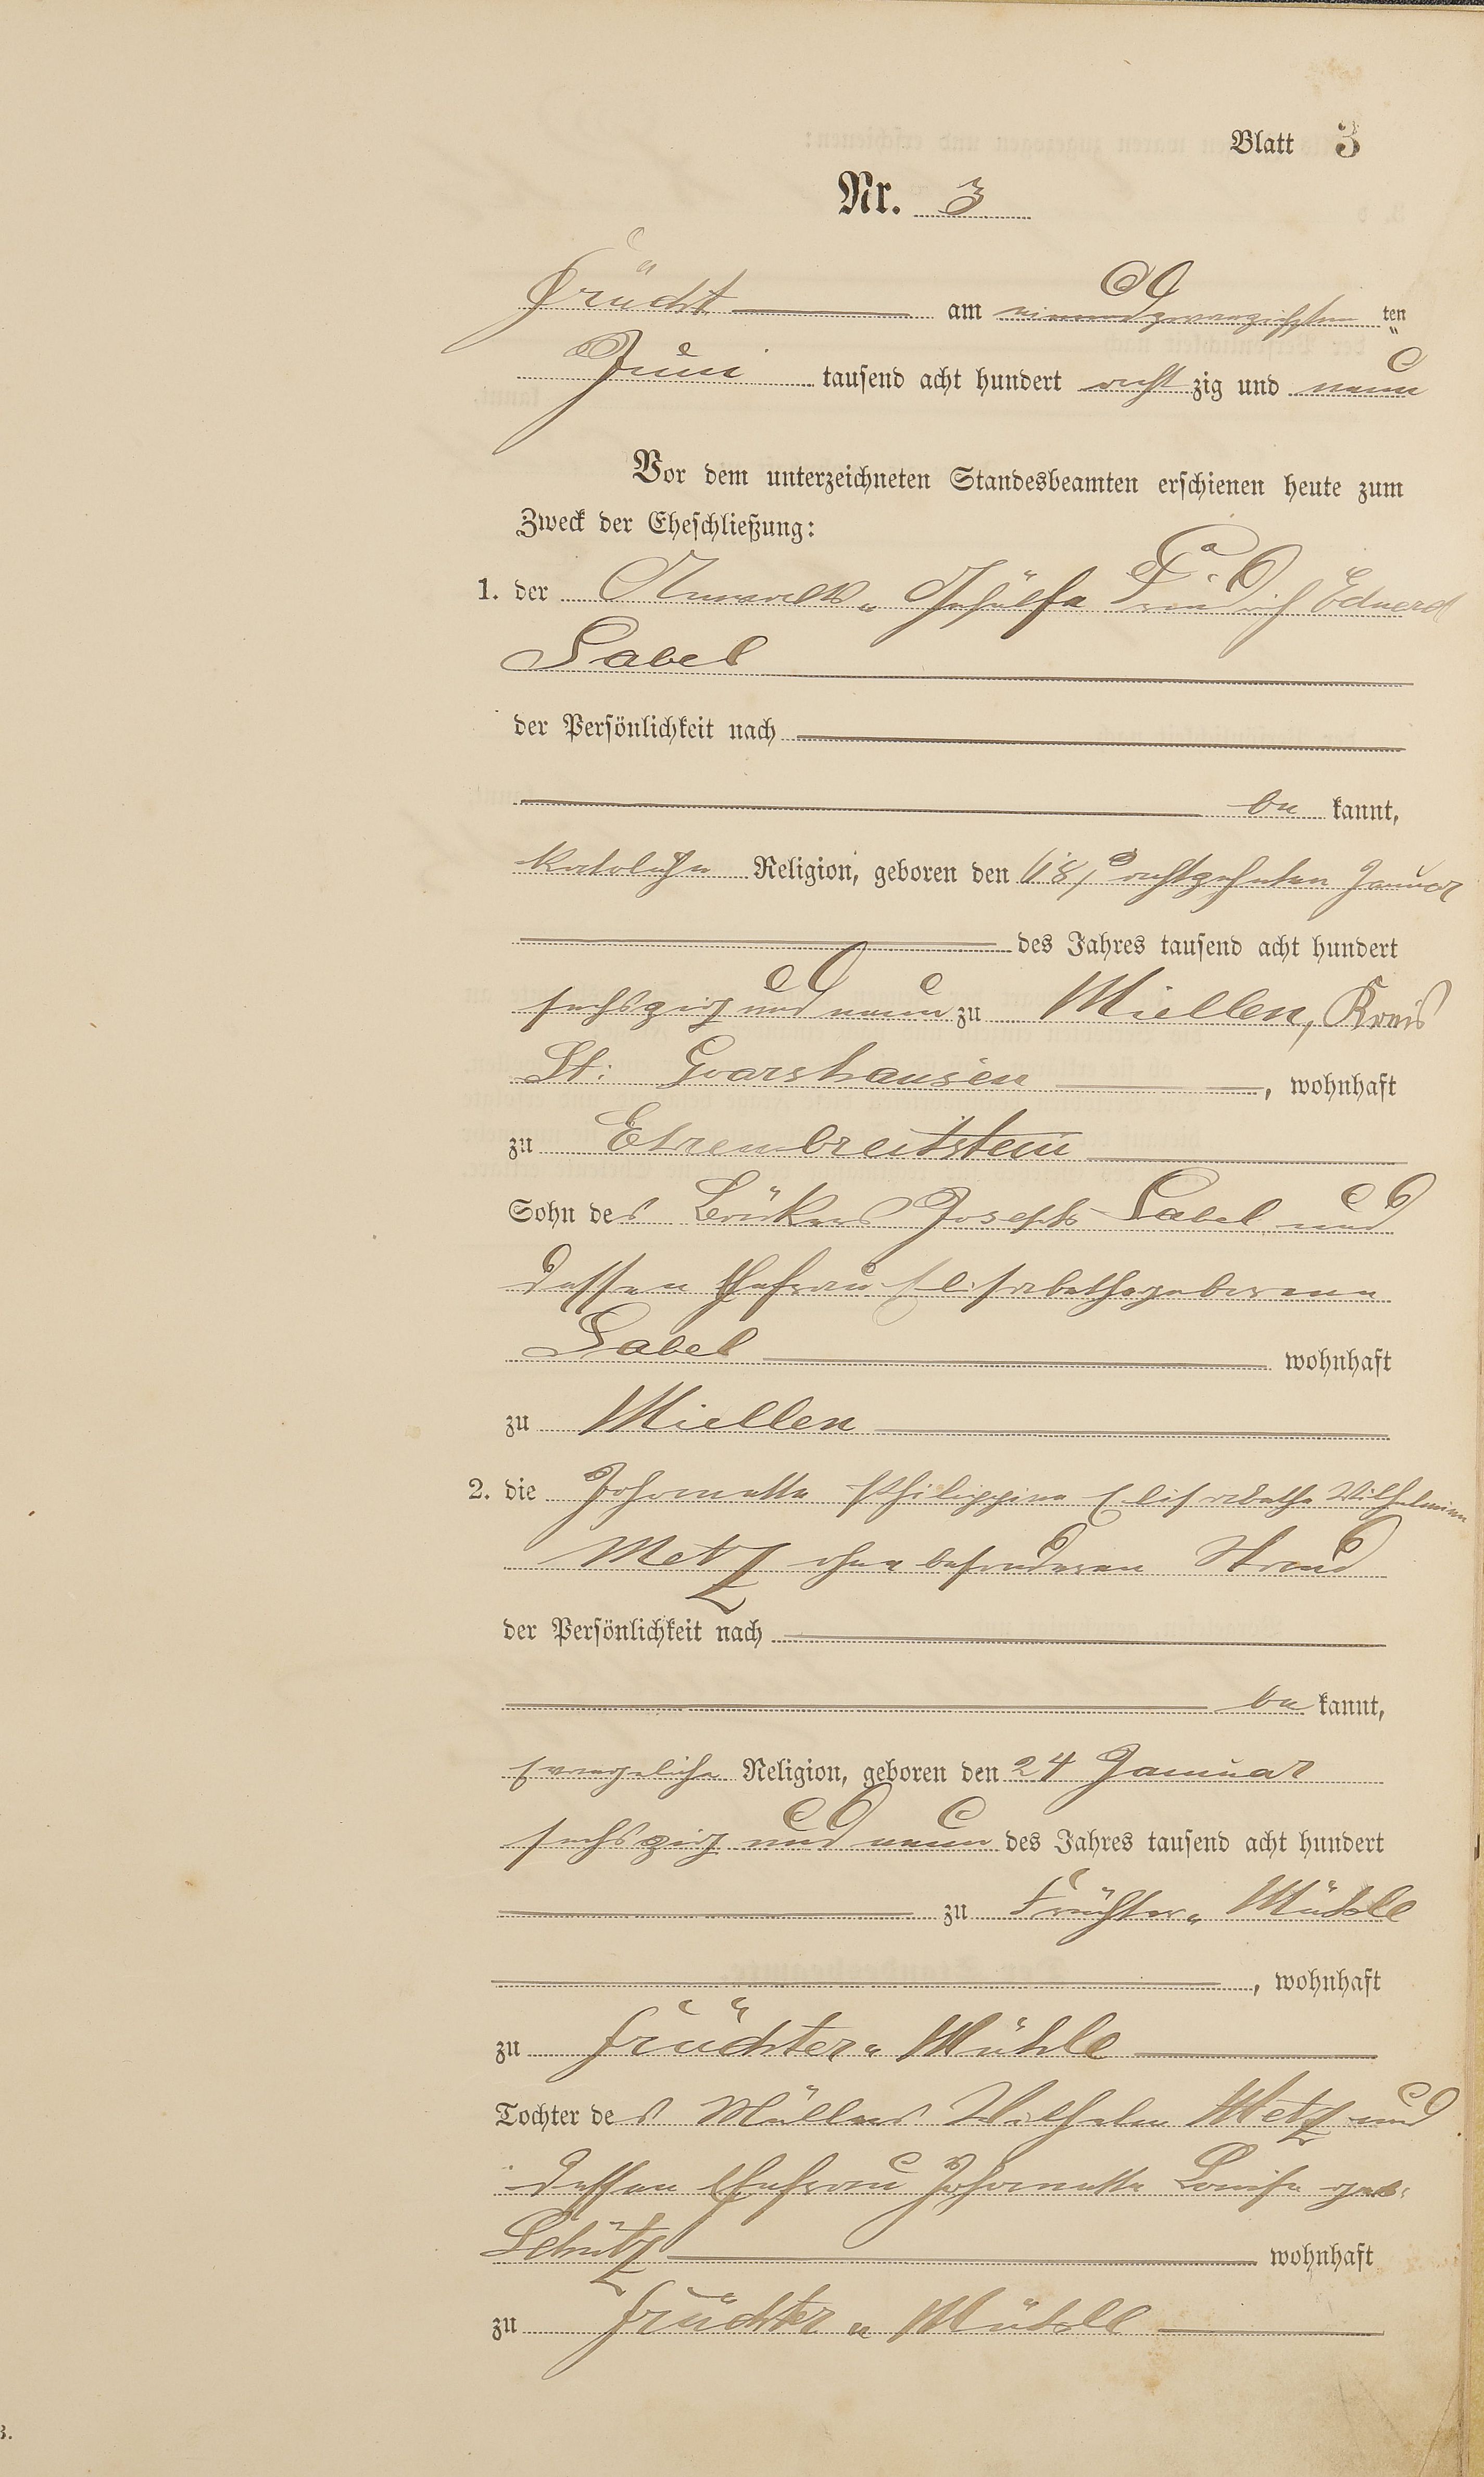 Blatt 3
Nr. 3
Frücht am einundzwanzigsten ten
Juni tausend acht hundert acht zig und neun
Vor dem unterzeichneten Standesbeamten erschienen heute zum
Zweck der Eheschließung:
1. der Anwalts-Gehülfe Friedrich Eduard
Sabel
der Persönlichkeit nach
be kannt,
katolische Religion, geboren den (18) achtzehnten Januar
des Jahres tausend acht hundert
sechszig und neun zu Miellen, Kreis
St. Goarshausen, wohnhaft
zu Ehrenbreitstein
Sohn des Joseph Sabel und
dessen Ehefrau Elisabetha geborene
Sabel wohnhaft
zu Miellen
2. die Johannette Philippine Elisabetha Wilhelmine
Metz ohne besonderen Stand
der Persönlichkeit nach
be kannt,
Religion, geboren den 24 Januar
sechszig und neun des Jahres tausend acht hundert
zu Früchter-Mühle
, wohnhaft
zu Früchter-Mühle
Tochter des Müllers Wilhelm Metz und
dessen Ehefrau Johannette Louise geb.
Schütz wohnhaft
zu Früchter-Mühle